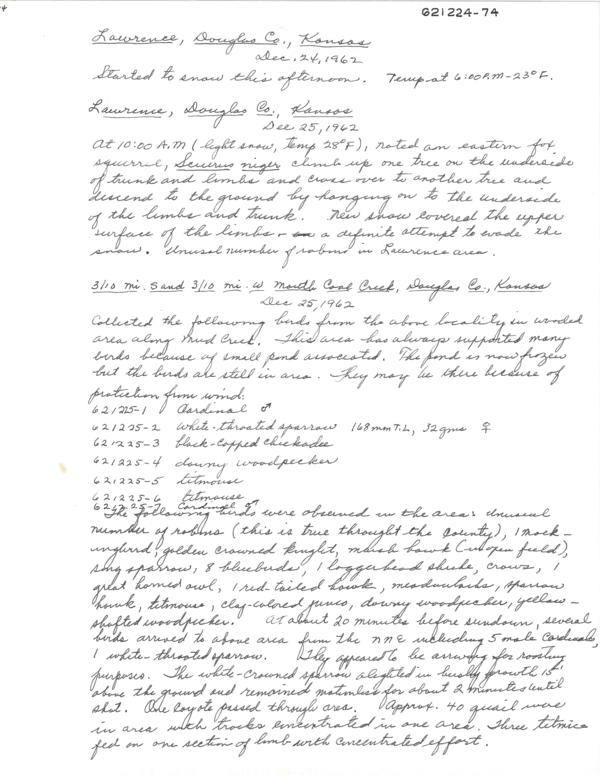 621224-74
Lawrence, Douglas Co., Kansas
Dec. 24, 1962
Started to snow this afternoon. Temp at 6:00 P.M - 23°F.
Lawrence, Douglas Co., Kansas
Dec 25, 1962
At 10:00 A.M (light snow, temp 28°F), noted an eastern fox
squirrel, Sciurus niger climb up one tree on the underside
of trunk and limbs and cross over to another tree and
descend to the ground by hanging on to the underside
of the limbs and trunk. New snow covered the upper
surface of the limbs - a definite attempt to evade the
snow. Unusual number of robins in Lawrence area.
3/10 mi. S and 3/10 mi. W Mouth Coal Creek, Douglas Co., Kansas
Dec 25, 1962
Collected the following birds from the above locality in wooded
area along Mud Creek. This area has always supported many
birds because of small pond associated. The pond is now frozen
but the birds are still in area. They may be there because of
protection from wind:
621225-1 Cardinal ♂
621225-2 White-throated sparrow 168mm T.L, 32 gms ♀
621225-3 black-capped chickadee
621225-4 downy woodpecker
621225-5 titmouse
621225-6 titmouse
621225-7 Cardinal ♂
The following birds were observed in the area: Unusual
number of robins (this is true throught the county), 1 mock-
ingbird, golden crowned kinglet, marsh hawk (in open field),
song sparrow, 8 bluebirds, 1 loggerhead shrike, crows, 1
great horned owl, 1 red-tailed hawk, meadowlarks, sparrow
hawk, titmouse, clay-colored junco, downy woodpecker, yellow-
shafted woodpecker. At about 20 minutes before sundown, several
birds arrived to above area from the NNE including 5 male Cardinals,
1 white-throated sparrow. They appeared to be arriving for roosting
purposes. The white-crowned sparrow alighted in bushy growth 15'
above the ground and remained motionless for about 2 minutes until
shot. One coyote passed through area. Approx. 40 quail were
in area with tracks concentrated in one area. Three titmice
fed on one section of limb with concentrated effort.